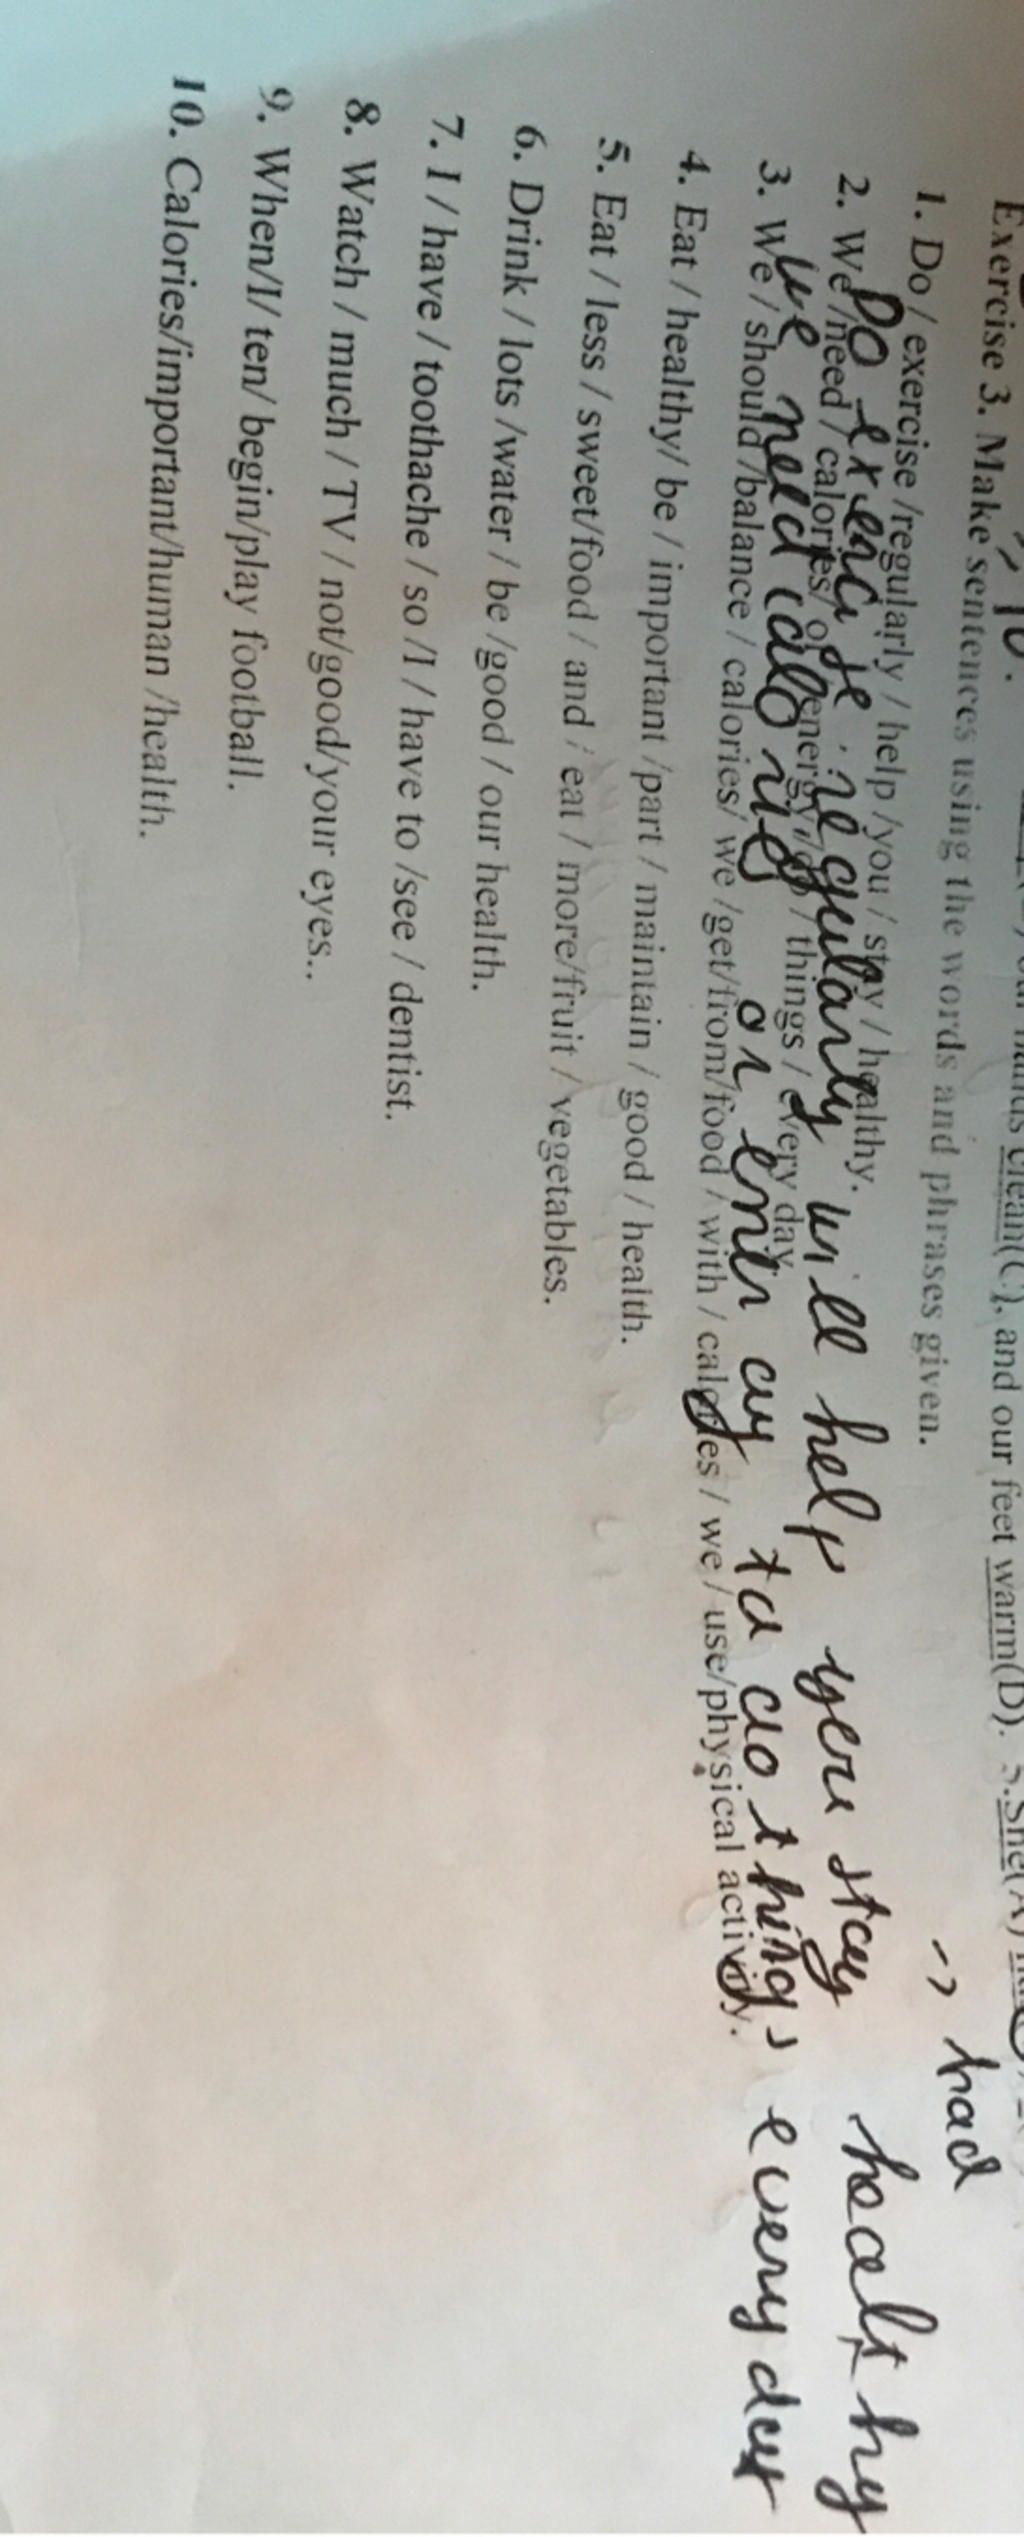 clean(C), and our feet warm(D). 5.She(A)
-> had
Exercise 3. Make sentences using the words and phrases given.
1. Do / exercise /regularly / help /you / stay / healthy.
Do exercise regularly will help you stay healthy
2. We /need / calories/ or energy / do / things / every day.
we need calories or energy to do things every day
3. We / should /balance / calories/ we /get/from/food / with / calories / we / use/physical activity.
4. Eat / healthy/ be / important /part / maintain / good / health.
5. Eat / less / sweet/food / and / eat / more/fruit / vegetables.
6. Drink / lots /water / be /good / our health.
7. I / have / toothache / so /I / have to /see / dentist.
8. Watch / much / TV / not/good/your eyes..
9. When/I/ ten/ begin/play football.
10. Calories/important/human /health.